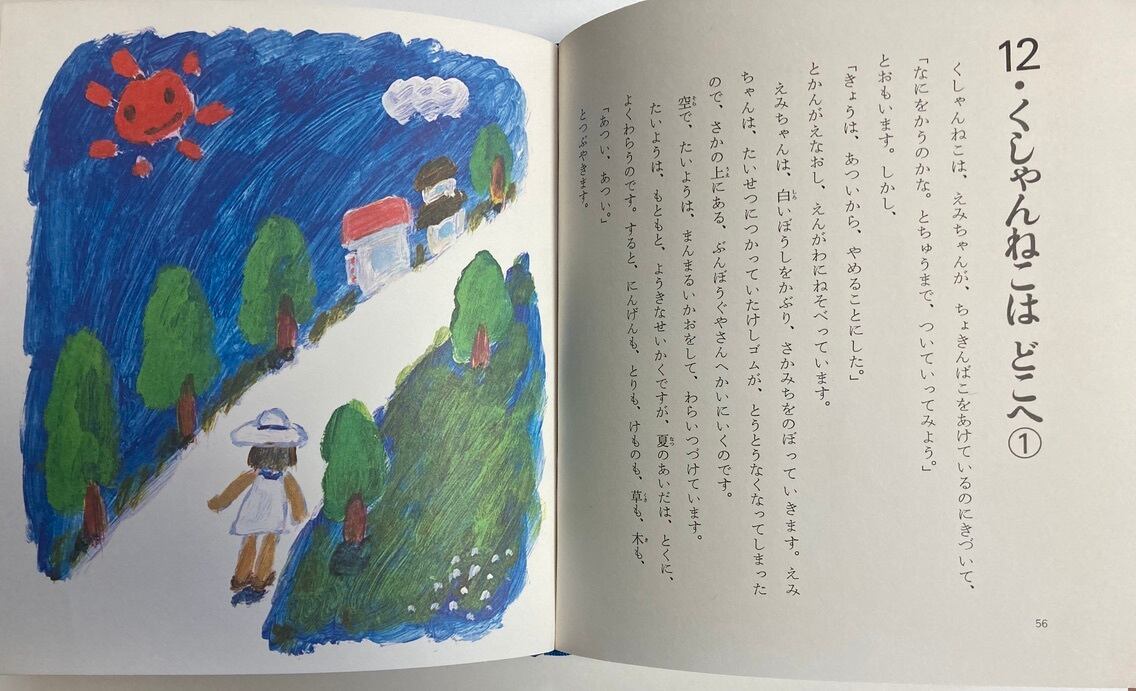 12・くしゃんねこは どこへ①
くしゃんねこは、えみちゃんが、ちょきんばこをあけているのにきづいて、
「なにをかうのかな。とちゅうまで、ついていってみよう。」
とおもいます。しかし、
「きょうは、あついから、やめることにした。」
とかんがえなおし、えんがわにねそべっています。
えみちゃんは、白いぼうしをかぶり、さかみちをのぼっていきます。えみ
ちゃんは、たいせつにつかっていたけしゴムが、とうとうなくなってしまった
ので、さかの上にある、ぶんぼうぐやさんへかいにいくのです。
空で、たいようは、まんまるいかおをして、わらいつづけています。
たいようは、もともと、ようきなせいかくですが、夏のあいだは、とくに、
よくわらうのです。すると、にんげんも、とりも、けものも、草も、木も、
「あつい、あつい。」
とつぶやきます。
56